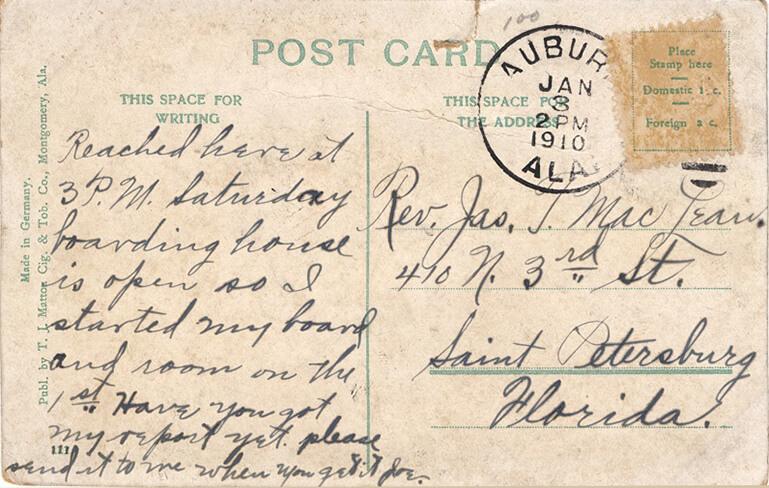 100
POST CARD
THIS SPACE FOR
WRITING
THIS SPACE FOR
THE ADDRESS
AUBURN
JAN
8
2 PM
1910
ALA.
Place
Stamp here
Domestic 1 c.
Foreign 2 c.
Made in Germany.
Publ. by T. J. Matton Cig. & Tob. Co., Montgomery, Ala.
Reached here at
3 P.M. Saturday
boarding house
is open so I
started my board
and room on the
1st. Have you got
my report yet. please
send it to me when you get it Joe.
111
Rev. Jas. T. MacLean.
410 N. 3rd St.
Saint Petersburg
Florida.